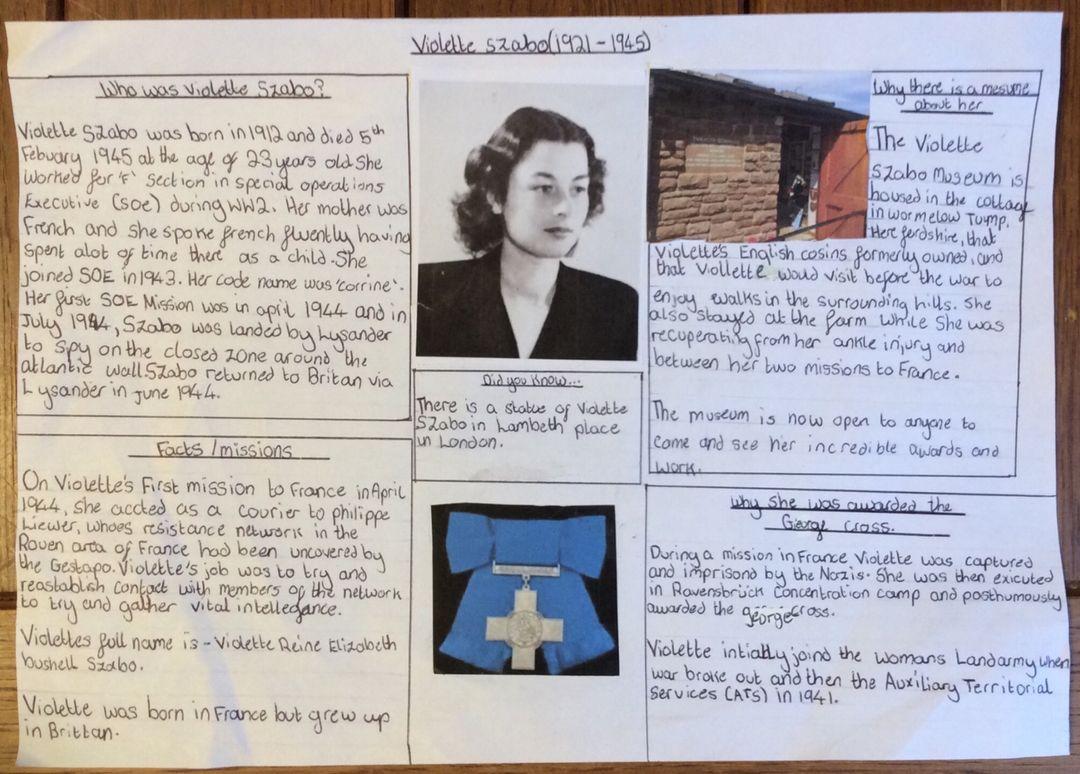 Violette Szabo (1921 - 1945)
Who was Violette Szabo?
Violette Szabo was born in 1912 and died 5th
Febuary 1945 at the age of 23 years old. She
worked for 'F' section in special operations
Executive (SOE) during WW2. Her mother was
French and she spoke french fluently having
spent alot of time there as a child. She
joined SOE in 1943. Her code name was 'corrine'.
Her first SOE Mission was in april 1944 and in
July 1944, Szabo was landed by Lysander
to spy on the closed zone around the
atlantic wall Szabo returned to Britan via
Lysander in june 1944.
Facts / missions
On Violette's First mission to France in April
1944, she accted as a courier to philippe
Liewer, whoes resistance network in the
Rouen area of France had been uncovered by
the Gestapo. Violette's job was to try and
reastablish contact with members of the network
to try and gather vital intellegence.
Violettes full name is - Violette Reine Elizabeth
bushell Szabo.
Violette was born in France but grew up
in Brittan.
Did you know...
There is a statue of Violette
Szabo in Lambeth place
in London.
Why there is a mesume
about her
The Violette
Szabo Museum is
housed in the cottage
in wormelow Tump,
Herefordshire, that
Violette's English cosins formerly owned, and
that Viollette would visit before the war to
enjoy walks in the surrounding hills. She
also stayed at the farm while She was
recuperating from her ankle injury and
between her two missions to France.
The museum is now open to anyone to
come and see her incredible awards and
work.
why she was awarded the
George Cross.
During a mission in France Violette was captured
and imprisond by the Nazis. She was then exicuted
in Ravensbrück Concentration camp and posthumously
awarded the george cross.
Violette intially joind the womans Landarmy when
war broke out and then the Auxiliary Territorial
Services (ATS) in 1941.